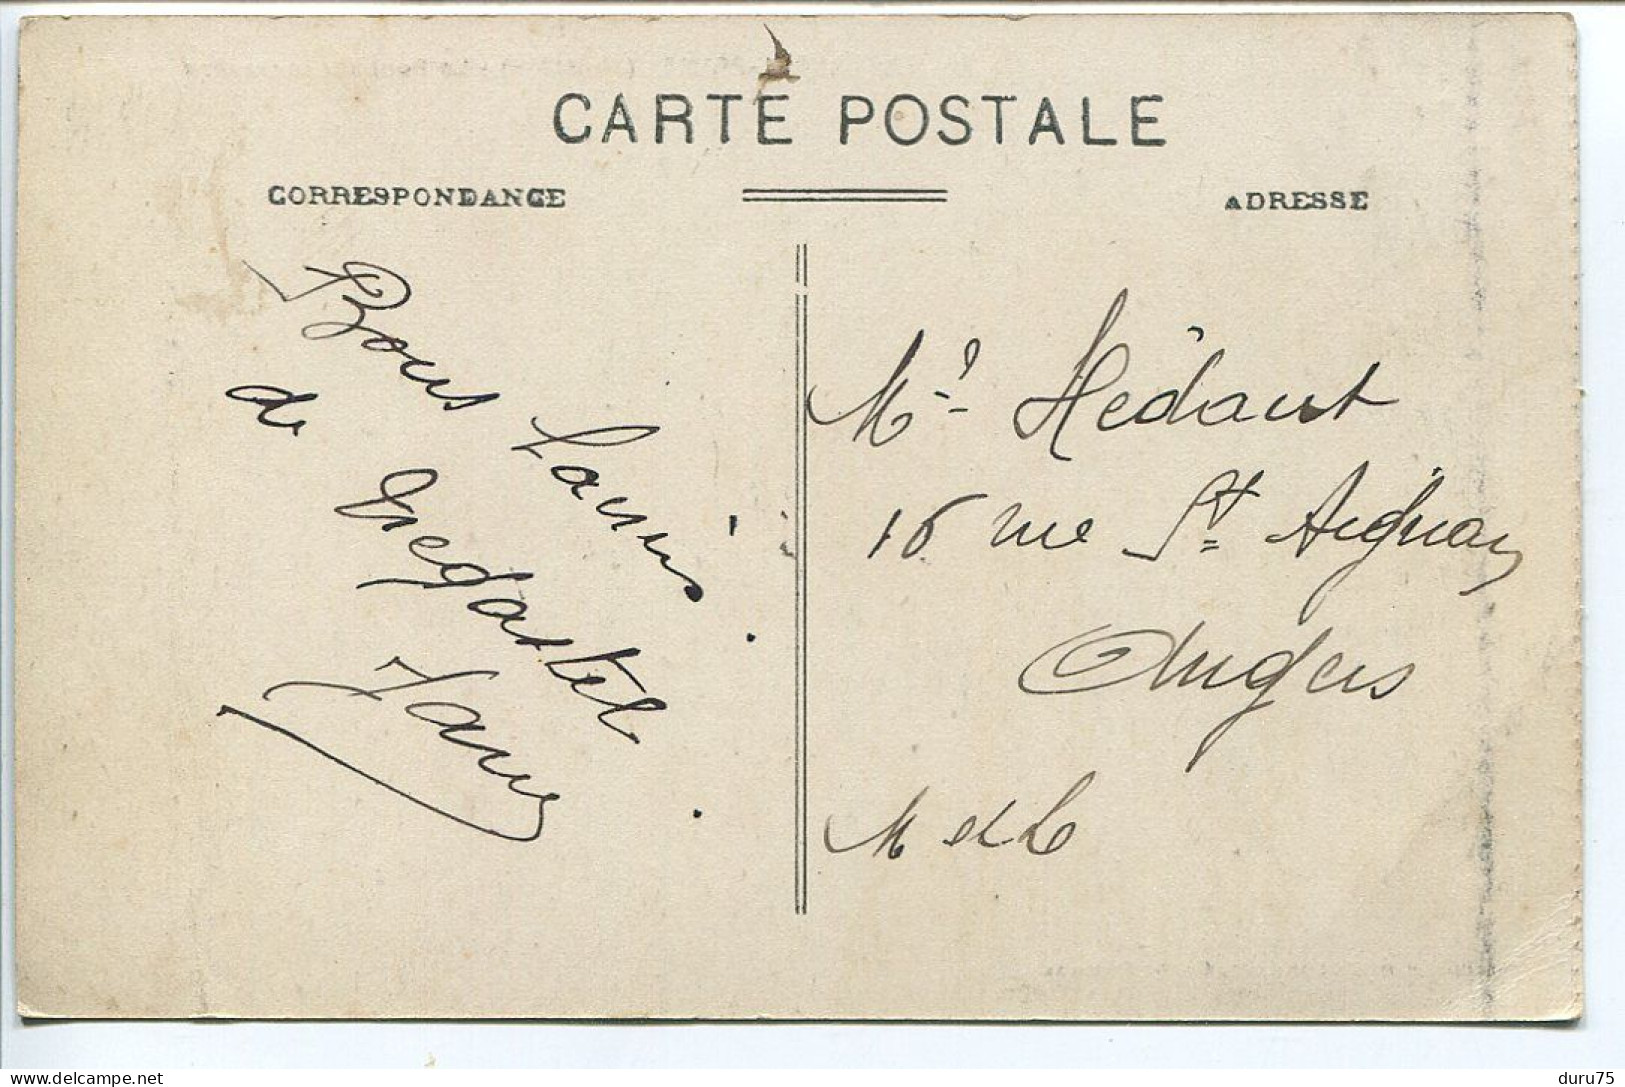 CARTE POSTALE
CORRESPONDANCE
ADRESSE
Bons
de Trégastel
Mr. Hédaut
16 rue St Aignan
Angers
M et L
delcampe.net
duru75